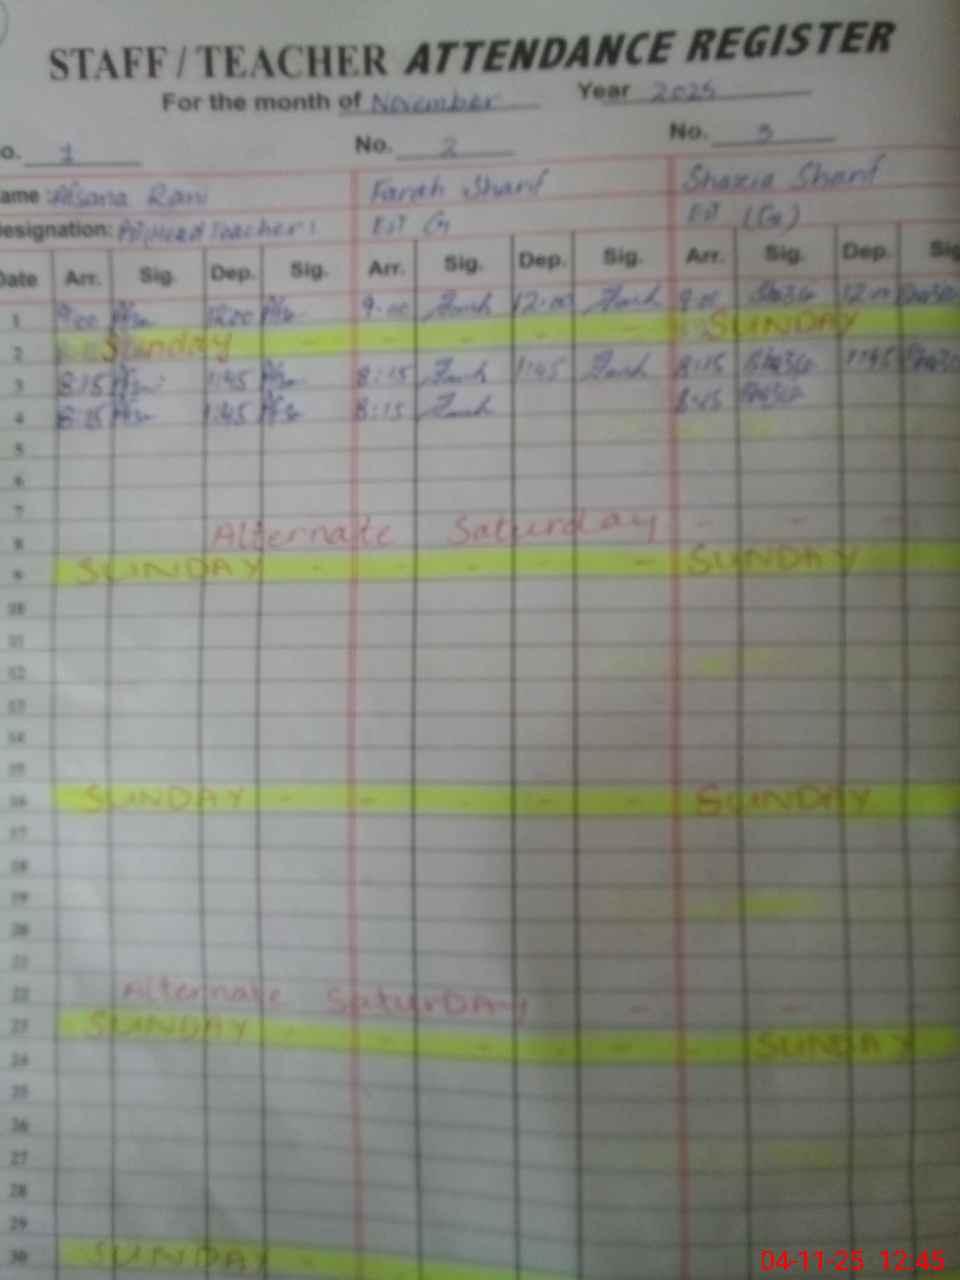 STAFF / TEACHER ATTENDANCE REGISTER
For the month of November Year 2025
No. 1 No. 2 No. 3
Name: Afsana Rani Farah Sharif Shazia Sharif
Designation: Head Teacher EST EST (G)
Date Arr. Sig. Dep. Sig. Arr. Sig. Dep. Sig. Arr. Sig. Dep. Sig
1 9:00 12:00 9:00 Farah 12:00 Farah 9:00 12:00
2 Sunday - - - - - SUNDAY
3 8:15 1:45 8:15 Farah 1:45 Farah 8:15 1:45
4 8:15 1:45 8:15 Farah 8:15
5
6
7
8 Alternate Saturday - - -
9 SUNDAY - - - - - SUNDAY
10
11
12
13
14
15
16 SUNDAY - - - - - SUNDAY
17
18
19
20
21
22 Alternate Saturday - - -
23 SUNDAY - - - - - - SUNDAY
24
25
26
27
28
29
30 SUNDAY -
04-11-25 12:45